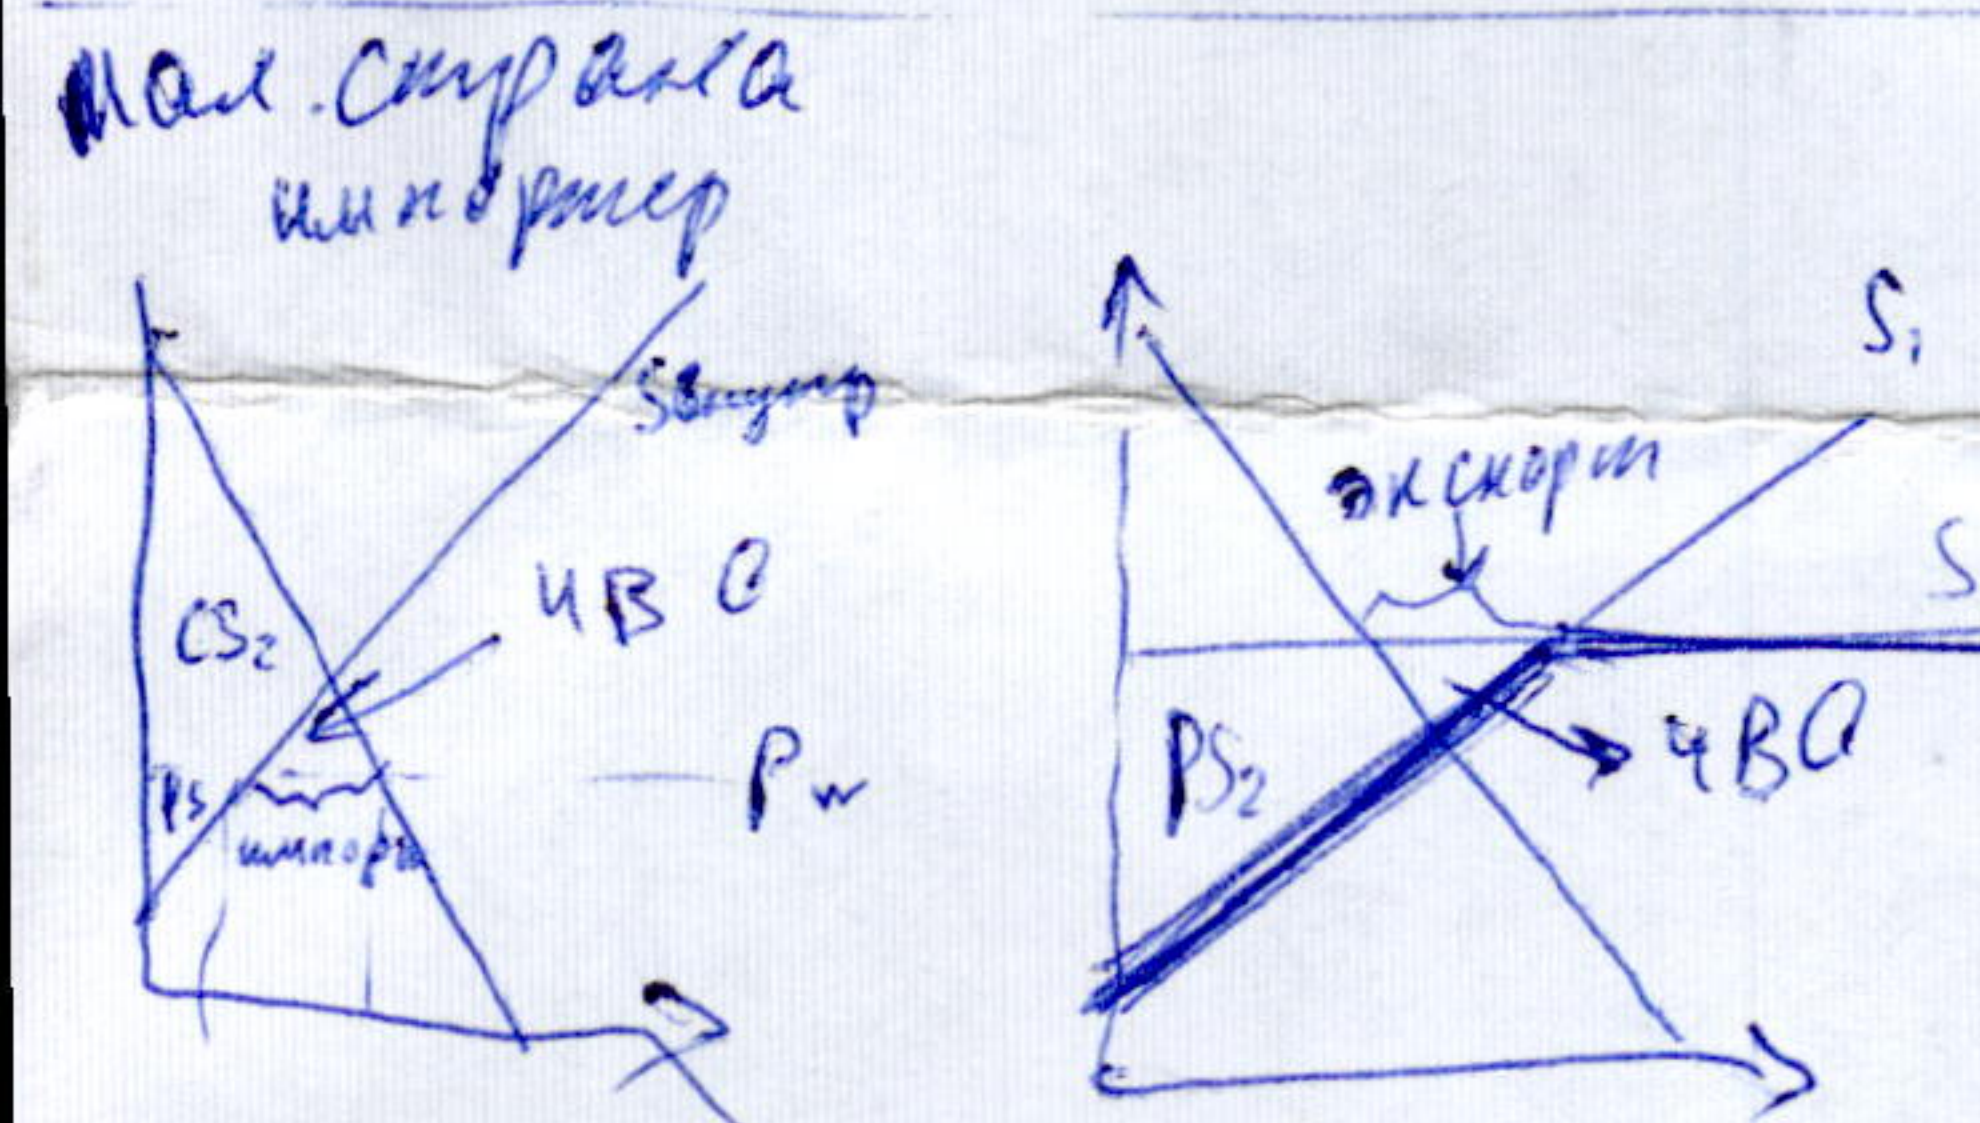 Мал. страна
импортер
Sвнутр
CS₂
ЧВО
PS
импорт
Pw
S₁
экспорт
S
PS₂
ЧВО